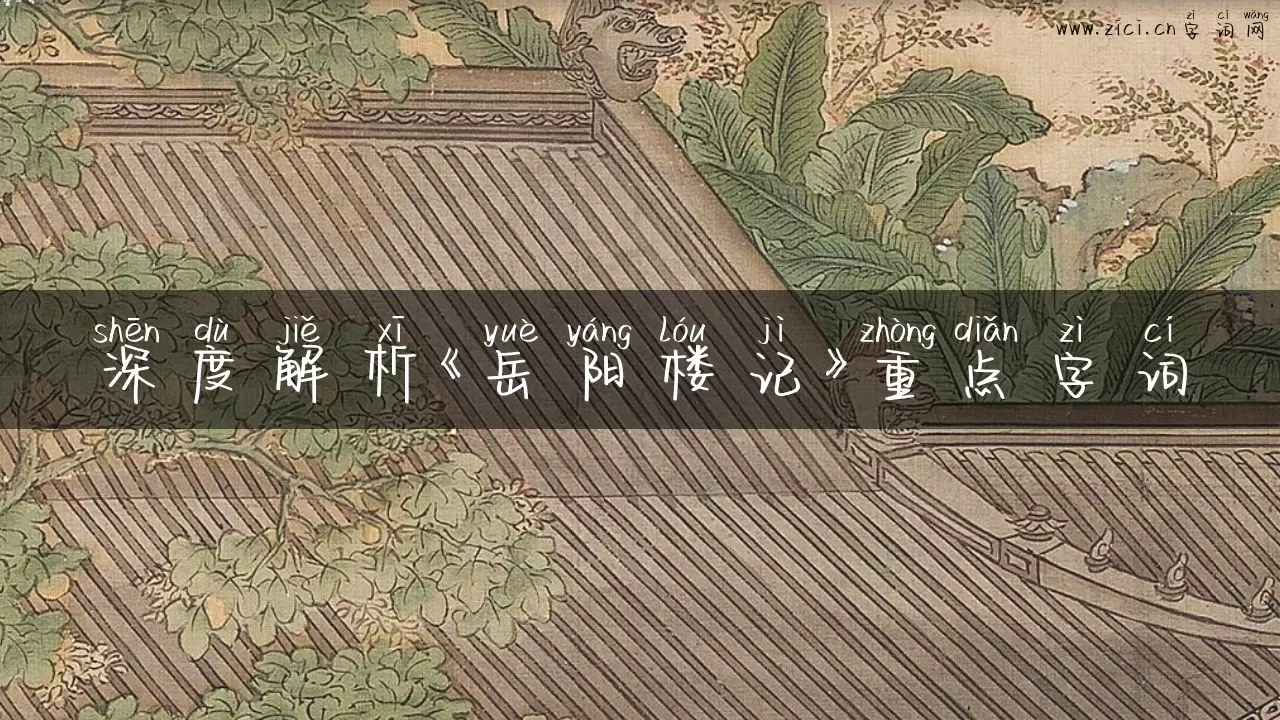 zì cí wǎng
www.zici.cn 字词网
shēn dù jiě xī yuè yáng lóu jì zhòng diǎn zì cí
深度解析《岳阳楼记》重点字词